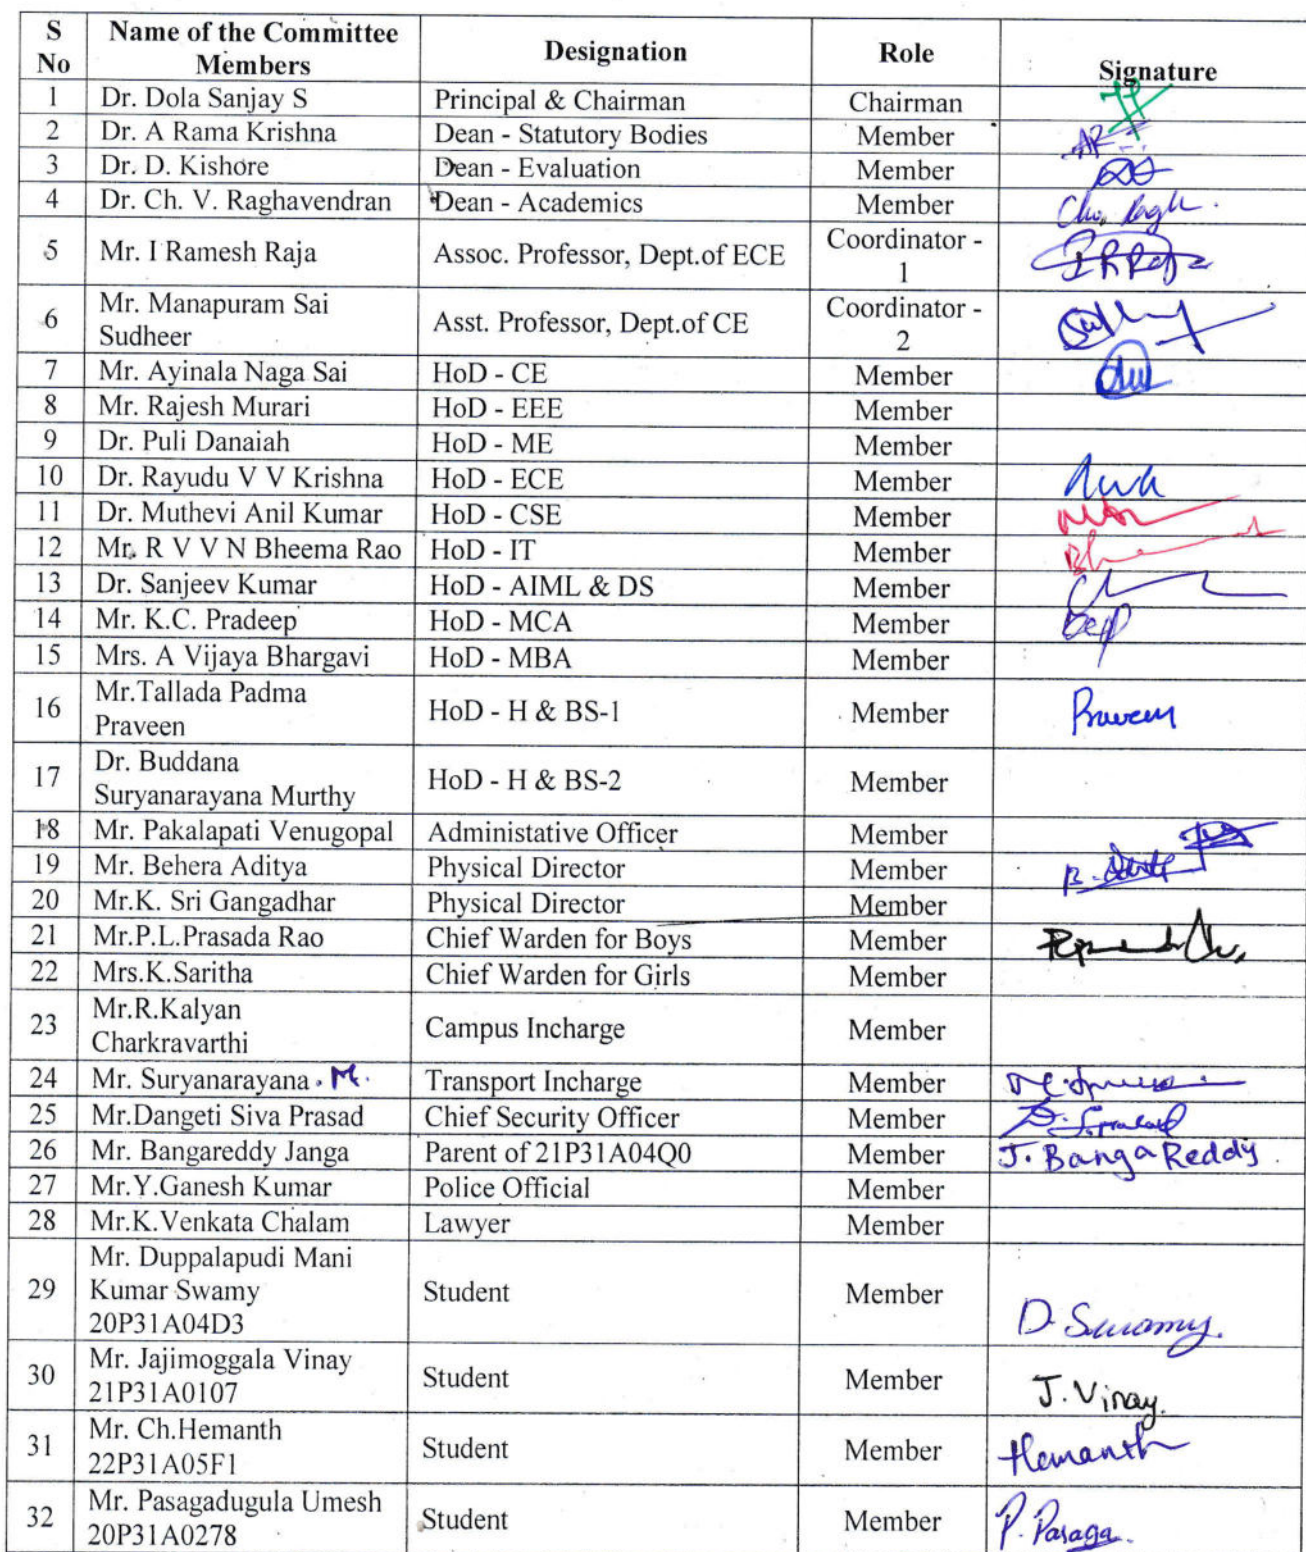 S No | Name of the Committee Members | Designation | Role | Signature
1 | Dr. Dola Sanjay S | Principal & Chairman | Chairman |
2 | Dr. A Rama Krishna | Dean - Statutory Bodies | Member |
3 | Dr. D. Kishore | Dean - Evaluation | Member |
4 | Dr. Ch. V. Raghavendran | Dean - Academics | Member |
5 | Mr. I Ramesh Raja | Assoc. Professor, Dept.of ECE | Coordinator - 1 |
6 | Mr. Manapuram Sai Sudheer | Asst. Professor, Dept.of CE | Coordinator - 2 |
7 | Mr. Ayinala Naga Sai | HoD - CE | Member |
8 | Mr. Rajesh Murari | HoD - EEE | Member |
9 | Dr. Puli Danaiah | HoD - ME | Member |
10 | Dr. Rayudu V V Krishna | HoD - ECE | Member |
11 | Dr. Muthevi Anil Kumar | HoD - CSE | Member |
12 | Mr. R V V N Bheema Rao | HoD - IT | Member |
13 | Dr. Sanjeev Kumar | HoD - AIML & DS | Member |
14 | Mr. K.C. Pradeep | HoD - MCA | Member |
15 | Mrs. A Vijaya Bhargavi | HoD - MBA | Member |
16 | Mr.Tallada Padma Praveen | HoD - H & BS-1 | Member | Praveen
17 | Dr. Buddana Suryanarayana Murthy | HoD - H & BS-2 | Member |
18 | Mr. Pakalapati Venugopal | Administative Officer | Member |
19 | Mr. Behera Aditya | Physical Director | Member |
20 | Mr.K. Sri Gangadhar | Physical Director | Member |
21 | Mr.P.L.Prasada Rao | Chief Warden for Boys | Member |
22 | Mrs.K.Saritha | Chief Warden for Girls | Member |
23 | Mr.R.Kalyan Charkravarthi | Campus Incharge | Member |
24 | Mr. Suryanarayana . M. | Transport Incharge | Member |
25 | Mr.Dangeti Siva Prasad | Chief Security Officer | Member |
26 | Mr. Bangareddy Janga | Parent of 21P31A04Q0 | Member | J. Banga Reddy
27 | Mr.Y.Ganesh Kumar | Police Official | Member |
28 | Mr.K.Venkata Chalam | Lawyer | Member |
29 | Mr. Duppalapudi Mani Kumar Swamy 20P31A04D3 | Student | Member | D. Swamy.
30 | Mr. Jajimoggala Vinay 21P31A0107 | Student | Member | J. Vinay.
31 | Mr. Ch.Hemanth 22P31A05F1 | Student | Member | Hemanth
32 | Mr. Pasagadugula Umesh 20P31A0278 | Student | Member | P. Pasaga.